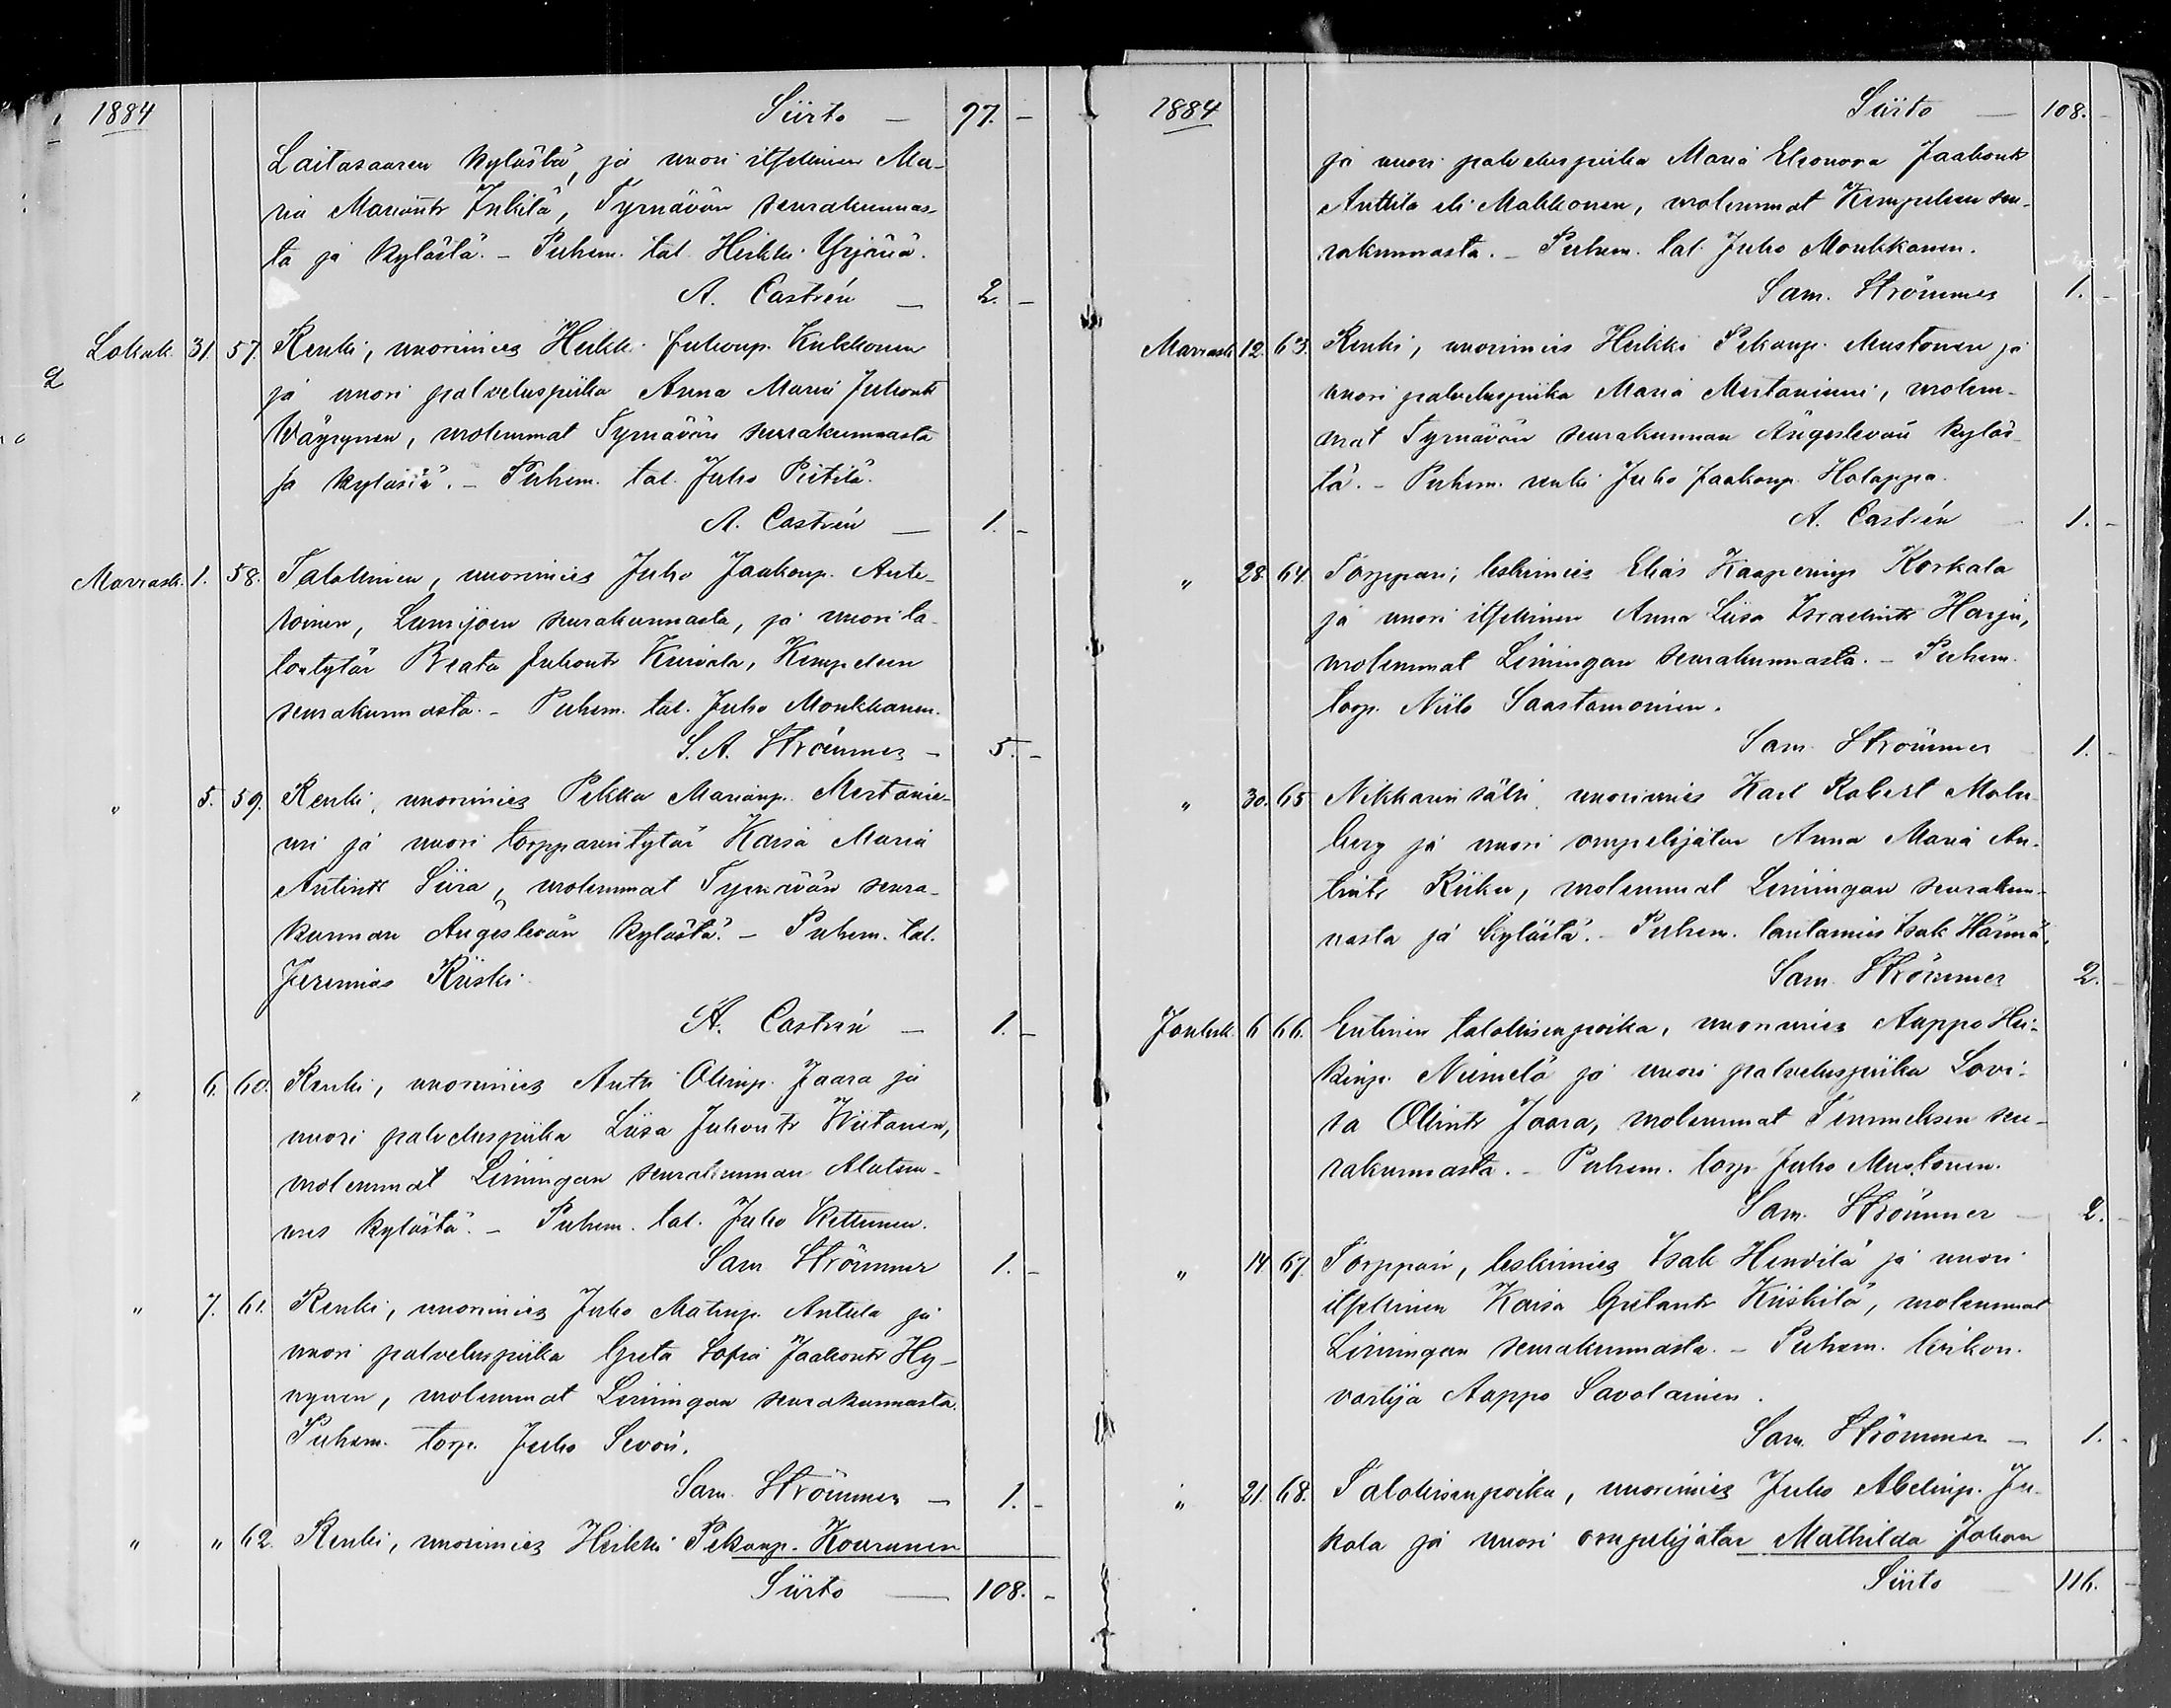 1884 Siirto — 97. —
Laitasaaren kylästä, ja nuori itsellinen Ma-
ria Mariantr Inkilä, Tyrnävän seurakunnas-
ta ja kylästä. – Puhem. tal. Heikki Yrjänä.
A. Castrén — 2. —
Lokak. 31. 57. Renki, nuorimies Heikki Juhonp. Kukkonen
ja nuori palveluspiika Anna Maria Juhontr
Wäyrynen, molemmat Tyrnävän seurakunnasta
ja kylästä. – Puhem. tal. Juho Pietilä.
A. Castrén — 1. —
Marrask. 1. 58. Talokinen, nuorimies Juho Jaakonp. Ante-
roinen, Lumijoen seurakunnasta, ja nuori ta-
lontytär Beata Juhontr Kuivala, Kempeleen
seurakunnasta. – Puhem. tal. Juho Monkkanen.
S. A. Strömmer – 5. –
" 5. 59. Renki, nuorimies Pekka Marianp. Mertanie-
mi ja nuori torpparintytär Kaisa Maria
Antintr Siira, molemmat Tyrnävän seura-
kunnan Ängeslevän kylästä. – Puhem. tal.
Jeremias Riiski.
A. Castrén – 1. –
" 6. 60. Renki, nuorimies Antti Ollinp. Jaara ja
nuori palveluspiika Liisa Juhontr Wiitanen,
molemmat Limingan seurakunnan Alatem-
mes kylästä. – Puhem. tal. Juho Kettunen.
Sam Strömmer 1. –
" 7. 61. Renki, nuorimies Juho Matinp. Anttila ja
nuori palveluspiika Greta Sofia Jaakontr Hy-
nynen, molemmat Limingan seurakunnasta.
Puhem. torp. Juho Sevon.
Sam. Strömmer – 1. –
" " 62. Renki, nuorimies Heikki Pekanp. Kourunen
Siirto — 108. –
1884 Siirto — 108. –
ja nuori palveluspiika Maria Eleonora Jaakontr
Anttila eli Makkonen, molemmat Kempeleen seu-
rakunnasta. – Puhem. tal. Juho Monkkanen.
Sam. Strömmer 1. –
Marrask. 12. 63. Renki, nuorimies Heikki Pekanp. Mustonen ja
nuori palveluspiika Maria Mertaniemi, molem-
mat Tyrnävän seurakunnan Ängeslevän kyläs-
tä. – Puhem. renki Juho Jaakonp. Holappa.
A. Castrén 1. –
" 28. 64. Torppari, leskimies Elias Kaaperinp. Korkala
ja nuori itsellinen Anna Liisa Israelintr Harju,
molemmat Limingan seurakunnasta. – Puhem.
torp. Niilo Saastamoinen.
Sam. Strömmer 1. –
" 30. 65. Nikkarinsälli, nuorimies Karl Robert Malm-
berg ja nuori ompelijatar Anna Maria An-
tintr Riika, molemmat Limingan seurakun-
nasta ja kylästä. – Puhem. lautamies Isak Härmä.
Sam. Strömmer 2. –
Jouluk. 6. 66. Entinen talokkaanpoika, nuorimies Aappo Hei-
kinp. Niemelä ja nuori palveluspiika Lovi-
sa Ollintr Jaara, molemmat Temmeksen seu-
rakunnasta. – Puhem. torp. Juho Mustonen.
Sam. Strömmer – 2. –
" 14. 67. Torppari, leskimies Isak Henvilä ja nuori
itsellinen Kaisa Gretantr Kiiskilä, molemmat
Limingan seurakunnasta. – Puhem. kirkon-
vartija Aappo Savolainen.
Sam. Strömmer – 1. –
" 21. 68. Talokkaanpoika, nuorimies Juho Abelinp. Ju-
kola ja nuori ompelijatar Mathilda Johan
Siirto — 116. –